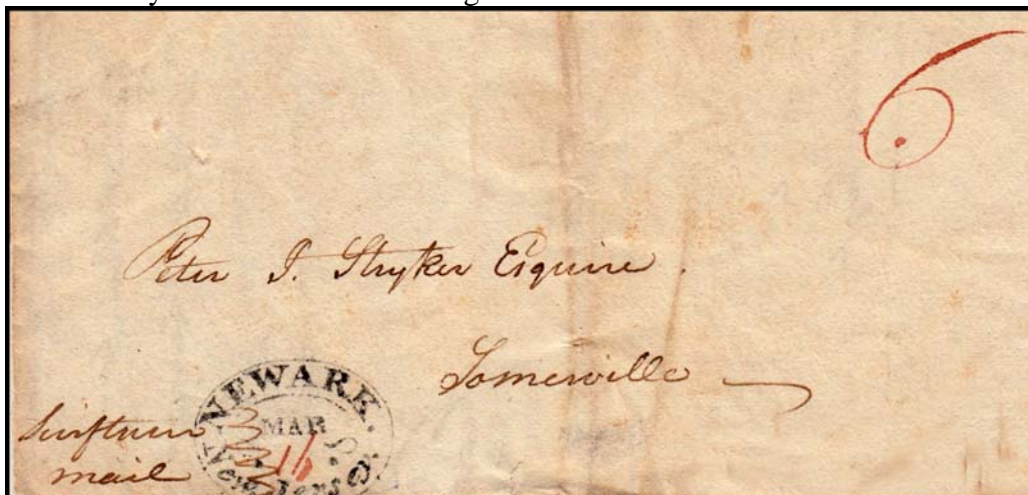 6
Peter I. Stryker Esquire.
Somerville
NEWARK.
MAR
New Jersey.
Swiftsure
mail